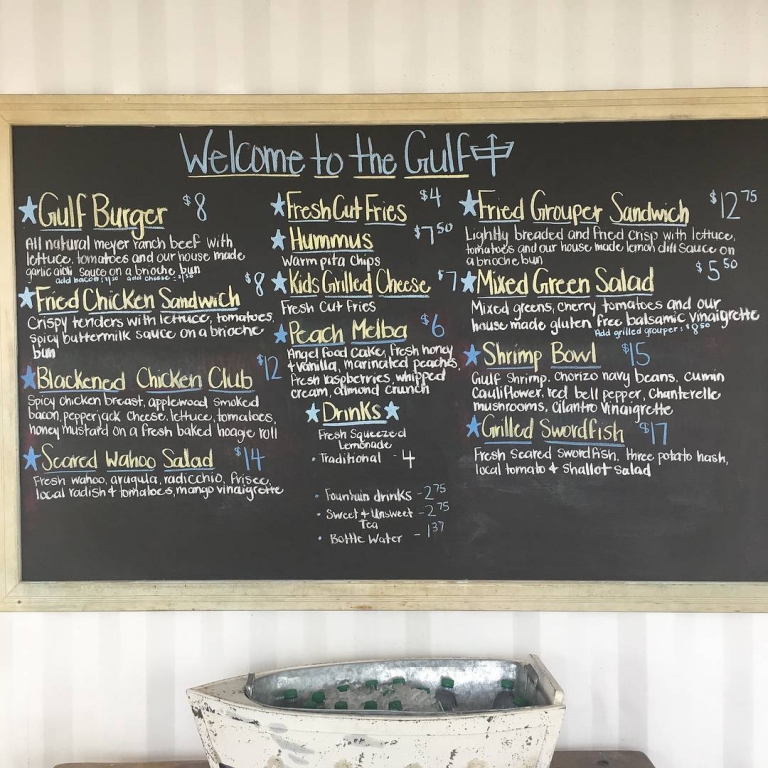 Welcome to the Gulf
Gulf Burger $8
All natural meyer ranch beef with
lettuce, tomatoes and our house made
garlic aioli sauce on a brioche bun
add bacon: $1.50 add cheese: $1.50
Fried Chicken Sandwich $8
Crispy tenders with lettuce, tomatoes,
spicy buttermilk sauce on a brioche
bun
Blackened Chicken Club $12
Spicy chicken breast, applewood smoked
bacon, pepperjack cheese, lettuce, tomatoes,
honey mustard on a fresh baked hoagie roll
Seared Wahoo Salad $14
Fresh wahoo, arugula, radicchio, frisee,
local radish & tomatoes, mango vinaigrette
Fresh Cut Fries $4
Hummus $7.50
Warm pita chips
Kids Grilled Cheese $7
Fresh cut fries
Peach Melba $6
Angel food cake, fresh honey
& vanilla, marinated peaches,
fresh raspberries, whipped
cream, almond crunch
Drinks
Fresh Squeezed
Lemonade
• Traditional - 4
• Fountain drinks - 2.75
• Sweet & Unsweet - 2.75
Tea
• Bottle Water - 1.37
Fried Grouper Sandwich $12.75
Lightly breaded and fried crisp with lettuce,
tomatoes and our house made lemon dill sauce on
a brioche bun
Mixed Green Salad $5.50
Mixed greens, cherry tomatoes and our
house made gluten free balsamic vinaigrette
Add grilled grouper: $8.50
Shrimp Bowl $15
Gulf shrimp, chorizo navy beans, cumin
cauliflower, red bell pepper, chanterelle
mushrooms, cilantro vinaigrette
Grilled Swordfish $17
Fresh seared swordfish, three potato hash,
local tomato & shallot salad